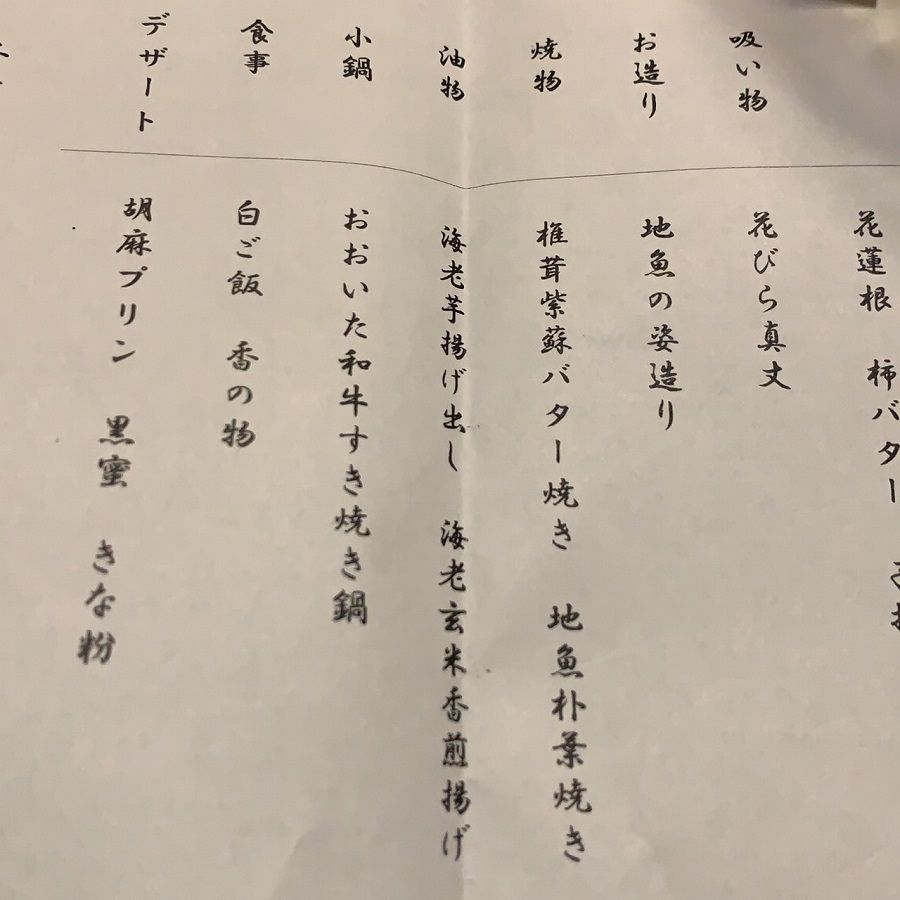 花蓮根　柿バター
吸い物
花びら真丈
お造り
地魚の姿造り
焼物
椎茸紫蘇バター焼き　地魚朴葉焼き
油物
海老芋揚げ出し　海老玄米香煎揚げ
小鍋
おおいた和牛すき焼き鍋
食事
白ご飯　香の物
デザート
胡麻プリン　黒蜜　きな粉